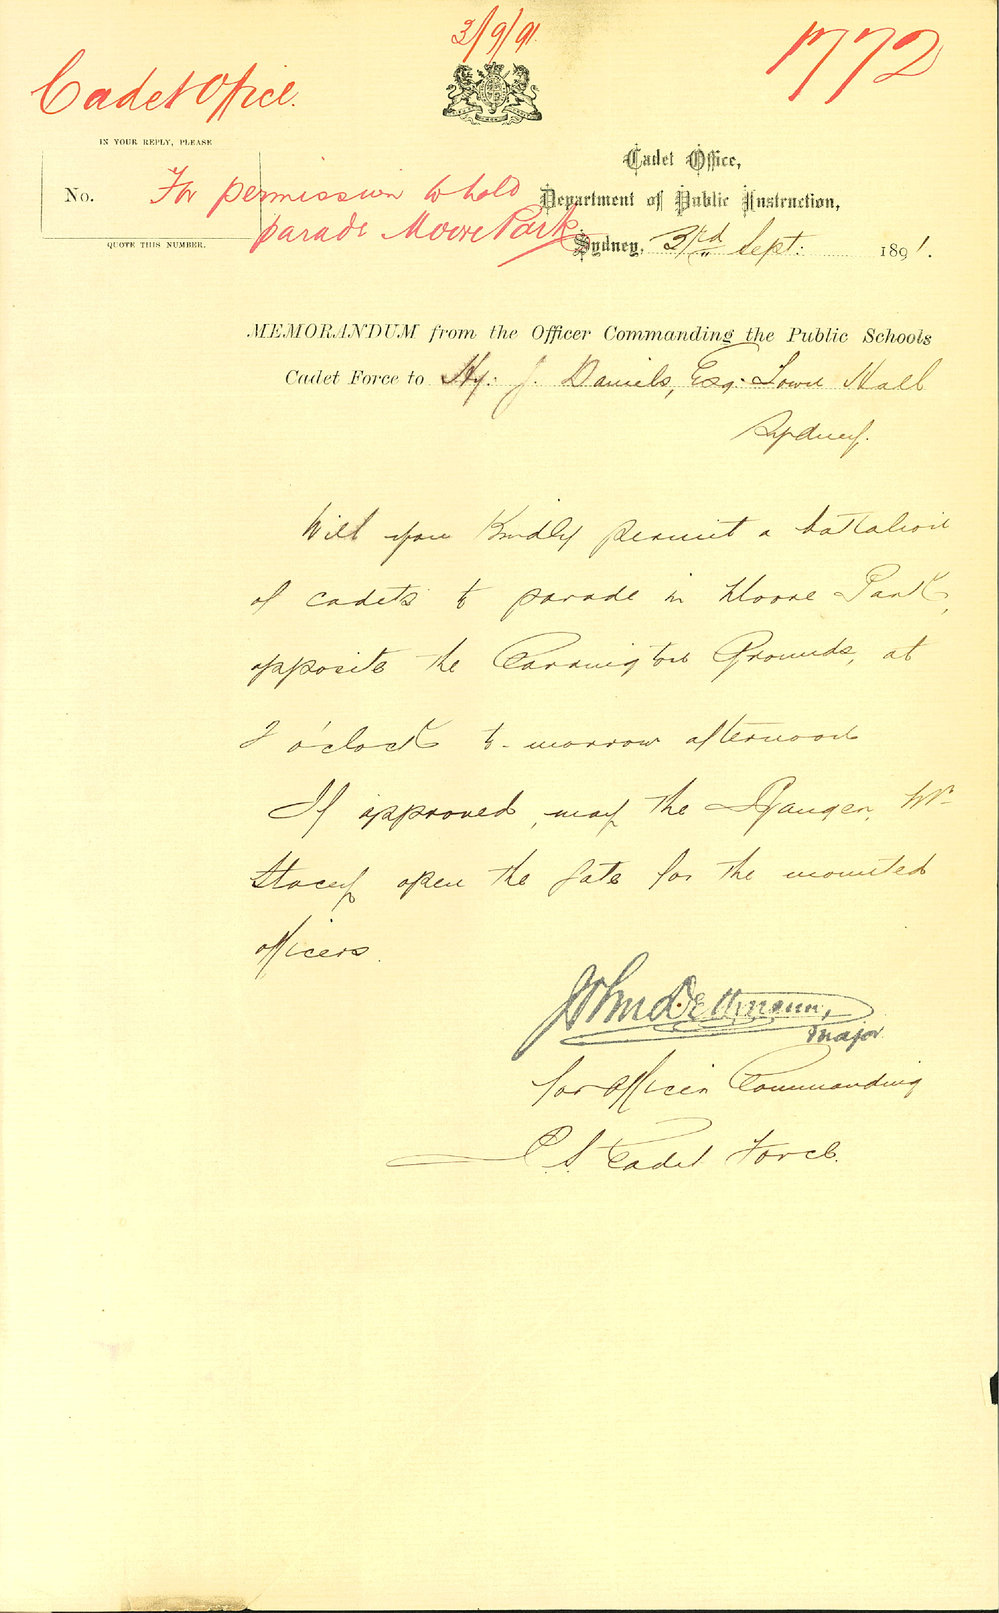 3/9/91
1772
Cadet Office.
IN YOUR REPLY, PLEASE
No.
QUOTE THIS NUMBER.
For permission to hold
parade Moore Park
Cadet Office,
Department of Public Instruction,
Sydney, 3rd Sept: 1891.
MEMORANDUM from the Officer Commanding the Public Schools
Cadet Force to Hy: J. Daniels, Esq: Town Hall
Sydney.
Will you Kindly permit a battalion
of cadets to parade in Moore Park,
opposite the Carrington Grounds, at
o'clock to-morrow afternoon
If approved, may the Ranger, Mr
Stacey open the gate for the mounted
officers.
John Dettmann,
Major
for Officer Commanding
P. S. Cadet Force.